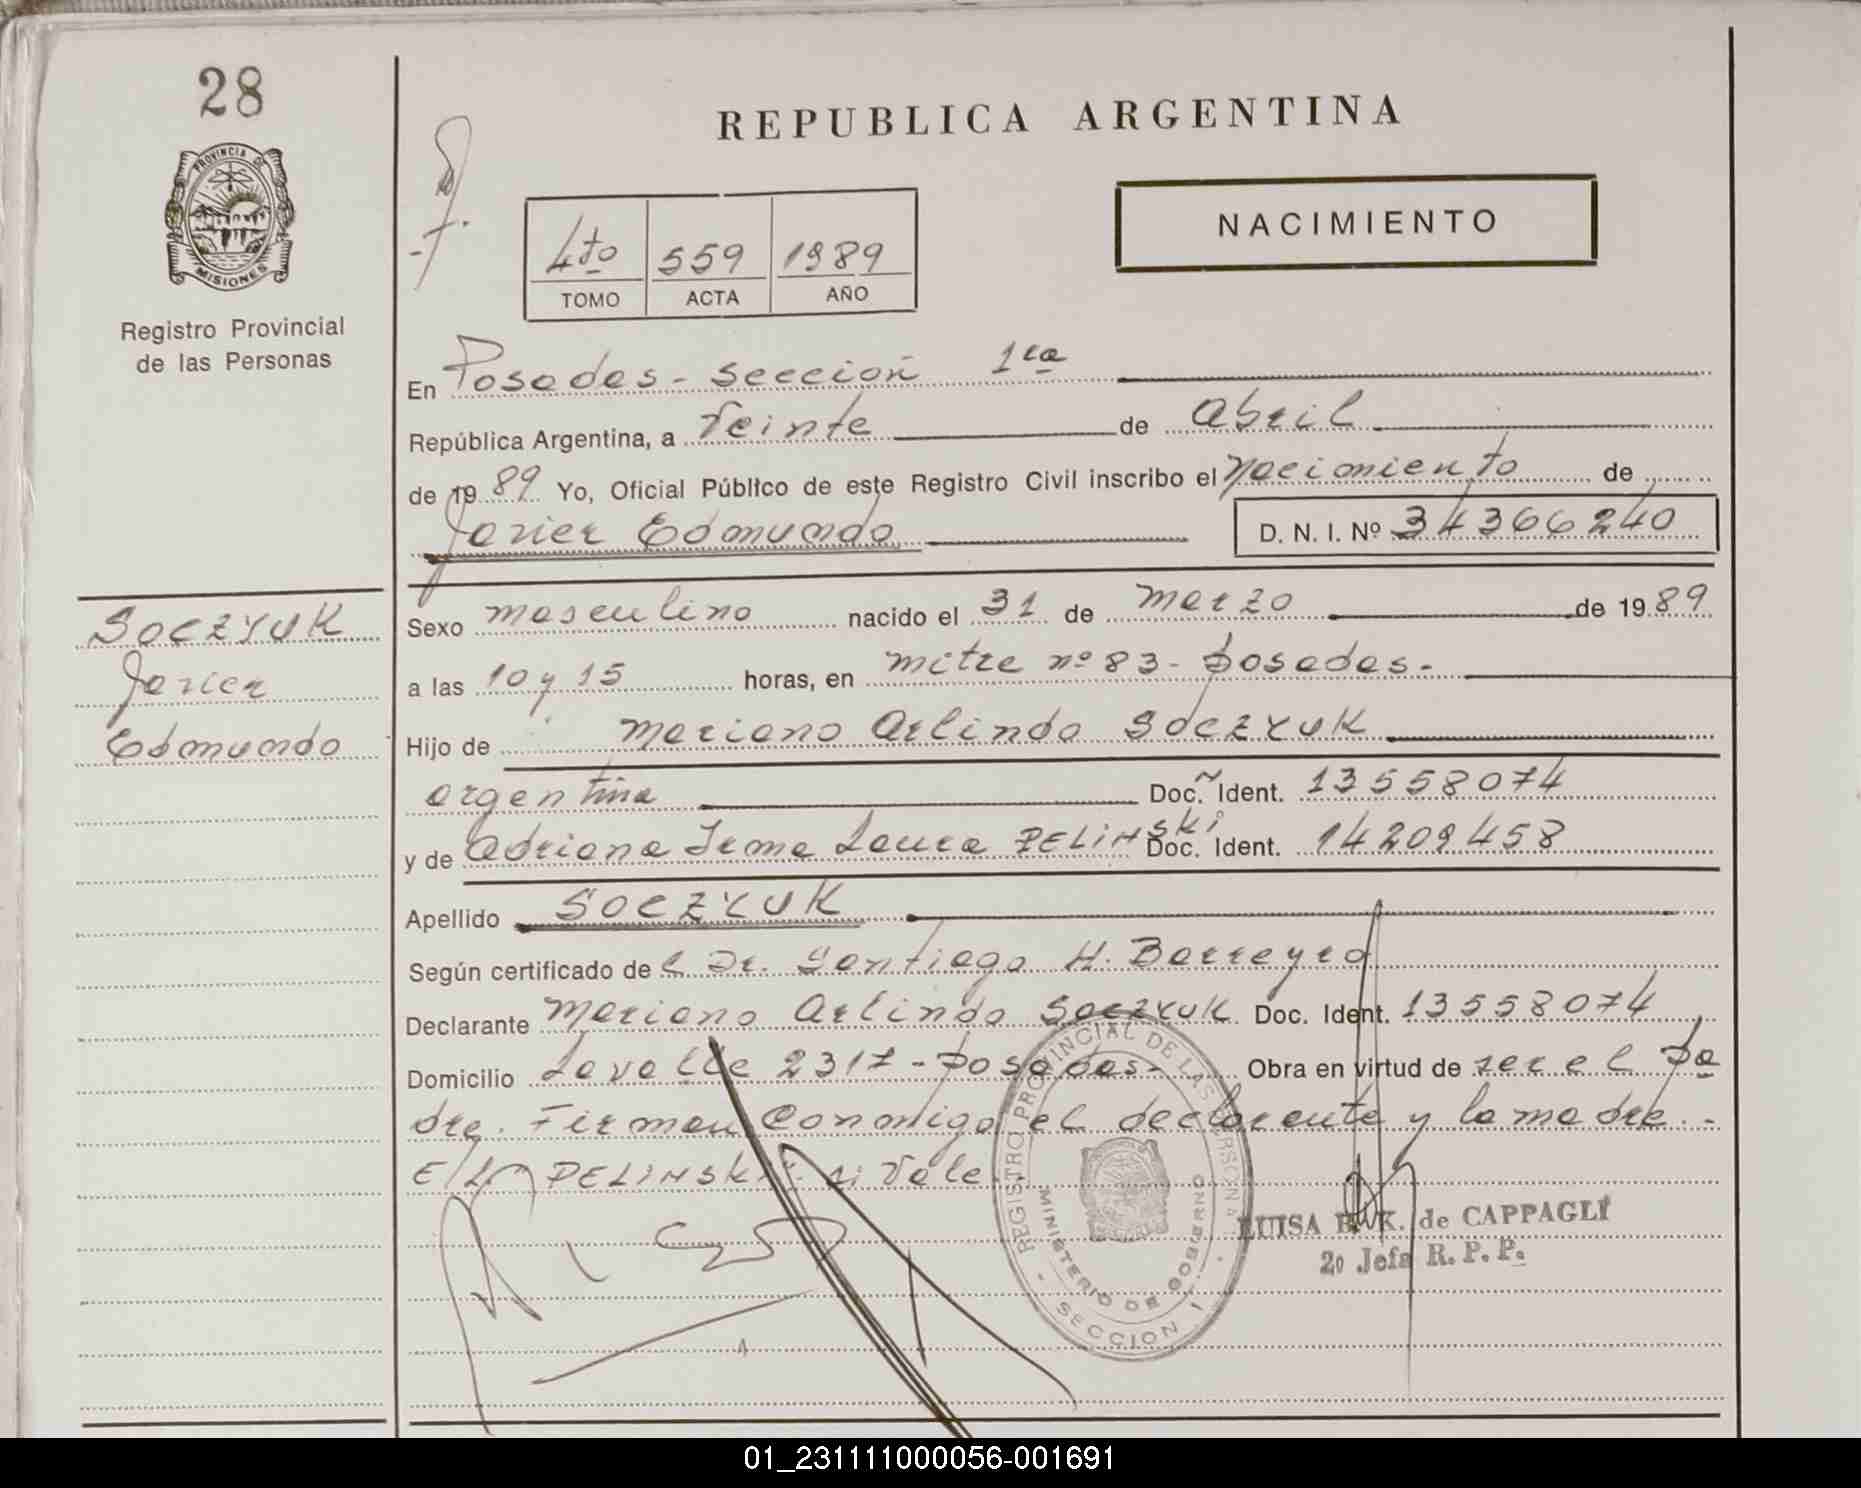 28
PROVINCIA DE
MISIONES
Registro Provincial
de las Personas
REPUBLICA ARGENTINA
NACIMIENTO
4to 559 1989
TOMO ACTA AÑO
En Posadas - Sección 1ra
República Argentina, a Veinte de Abril
de 1989 Yo, Oficial Público de este Registro Civil inscribo el Nacimiento de
Javier Edmundo D. N. I. Nº 34366240
SOCZYUK
Javier
Edmundo
Sexo masculino nacido el 31 de Marzo de 1989
a las 10 y 15 horas, en Mitre nº 83 - Posadas.
Hijo de Mariano Arlindo SOCZYUK
argentina Doc. Ident. 13558074
y de Adriana Irma Laura PELINSKI Doc. Ident. 14209458
Apellido SOCZYUK
Según certificado del Dr. Santiago H. Barreyro
Declarante Mariano Arlindo SOCZYUK Doc. Ident. 13558074
Domicilio Lavalle 2317 - Posadas - Obra en virtud de ser el pa
dre. Firman conmigo el declarante y la madre. -
E/L PELINSKI: si Vale.
REGISTRO PROVINCIAL DE LAS PERSONAS
MINISTERIO DE GOBIERNO
SECCION 1
LUISA B. K. de CAPPAGLI
2º Jefa R. P. P.
01_231111000056-001691